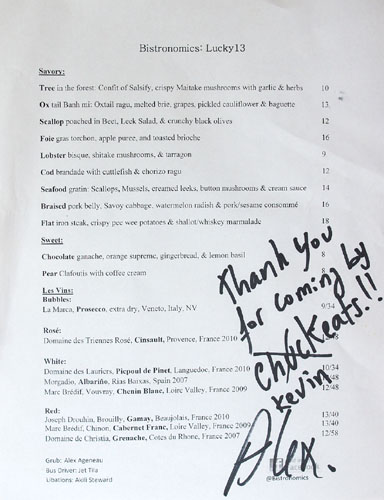 Bistronomics: Lucky13
Savory:
Tree in the forest: Confit of Salsify, crispy Maitake mushrooms with garlic & herbs 10
Ox tail Banh mi: Oxtail ragu, melted brie, grapes, pickled cauliflower & baguette 13
Scallop poached in Beet, Leek Salad, & crunchy black olives 12
Foie gras torchon, apple puree, and toasted brioche 16
Lobster bisque, shitake mushrooms, & tarragon 9
Cod brandade with cuttlefish & chorizo ragu 12
Seafood gratin: Scallops, Mussels, creamed leeks, button mushrooms & cream sauce 14
Braised pork belly, Savoy cabbage, watermelon radish & pork/sesame consommé 16
Flat iron steak, crispy pee wee potatoes & shallot/whiskey marmalade 18
Sweet:
Chocolate ganache, orange supreme, gingerbread, & lemon basil 8
Pear Clafoutis with coffee cream 8
Les Vins:
Bubbles:
La Marca, Prosecco, extra dry, Veneto, Italy, NV 9/34
Rosé:
Domaine des Triennes Rosé, Cinsault, Provence, France 2010
White:
Domaine des Lauriers, Picpoul de Pinet, Languedoc, France 2010 10/34
Morgadio, Albariño, Rias Baixas, Spain 2007
Marc Brédif, Vouvray, Chenin Blanc, Loire Valley, France 2009 12/48
Red:
Joseph Drouhin, Brouilly, Gamay, Beaujolais, France 2010 13/40
Marc Brédif, Chinon, Cabernet Franc, Loire Valley, France 2009 13/40
Domaine de Christia, Grenache, Cotes du Rhone, France 2007 12/58
Grub: Alex Ageneau
Bus Driver: Jet Tila
Libations: Akili Steward
@Bistronomics
Thank you
for coming by
chuckeats!!
kevin
Alex.